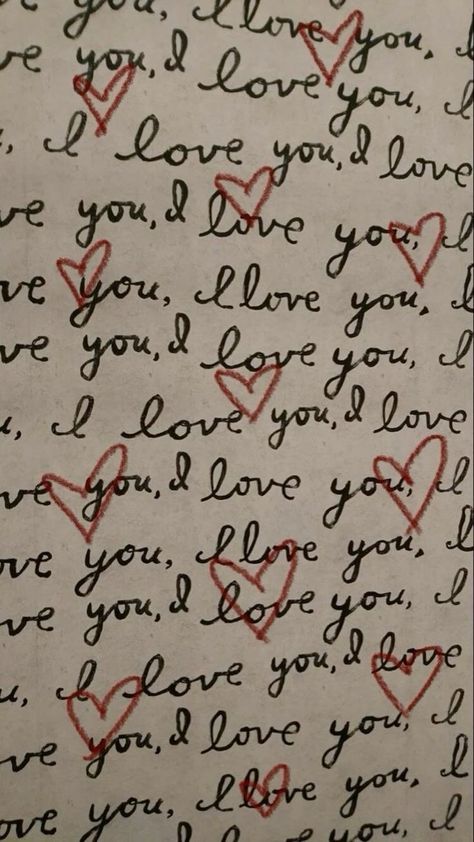 you, I love you, I
ve you, I love you, I
, I love you, I love
ve you, I love you, I
ve you, I love you, I
ve you, I love you, I
u, I love you, I love
ve you, I love you, I
ove you, I love you, I
ve you, I love you, I
u, I love you, I love
ve you, I love you, I
ove you, I love you, I
I love you, I